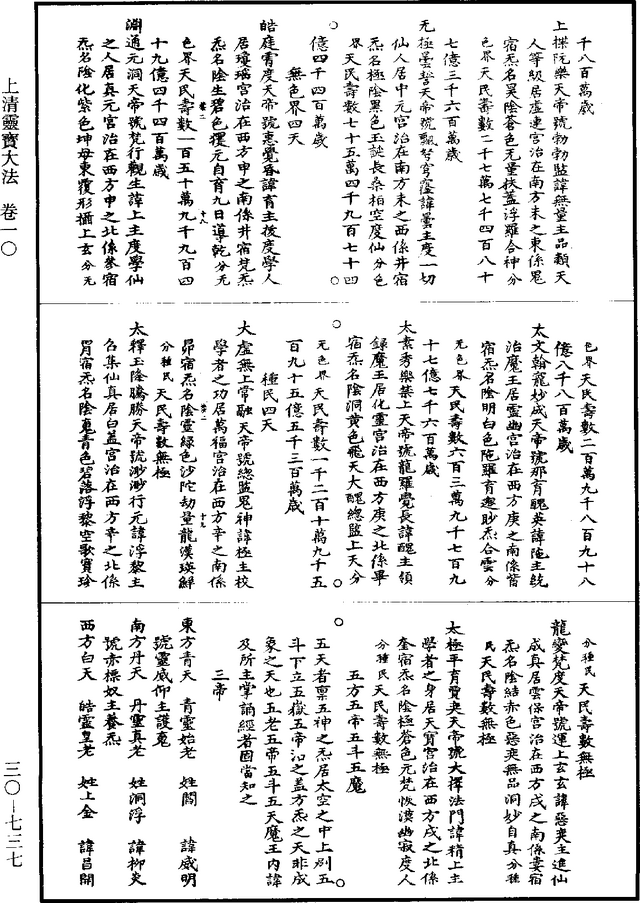 上清靈寶大法　卷一〇
三〇—七三七
千八百萬歲
上揲阮樂天帝號勃勃監諱無量主品類天
人等級居虛連宮治在南方未之東係鬼
宿炁名昊陰蒼色无量扶蓋浮羅合神分
色界天民壽數二千七萬七千四百八十
七億三千六百萬歲
无極曇誓天帝號飄弩穹窿諱曇主度一切
仙人居中元宮治在南方未之西係井宿
炁名極陰黑色玉誕長桑柏空度仙分色
界天民壽數七十五萬四千九百七十四
億四千四百萬歲
無色界四天
皓庭霄度天帝號惠覺昏諱育主拔度學人
居瓊瑤宮治在西方申之南係井宿梵炁
炁名陰生碧色玃无自育九日導乾分无
色界天民壽數一百五十萬九千九百四
十九億四千四百萬歲
淵通元洞天帝號梵行觀生諱上主度學仙
之人居真元宮治在西方申之北係參宿
炁名陰化紫色坤母東覆形攝上玄分无
色界天民壽數二百萬九千八百九十八
億八千八百萬歲
太文翰寵妙成天帝號那育醜英諱陁主統
治魔王居靈幽宮治在西方庚之南係觜
宿炁名陰明白色陁羅育邈眇炁合雲分
无色界天民壽數六百三萬九千七百九
十七億七千六百萬歲
太素秀樂禁上天帝號龍羅覺長諱醜主領
錄魔王居化靈宮治在西方庚之北係畢
宿炁名陰洞黃色飛天大醜總監上天分
无色界天民壽數一千二百十萬九千五
百九十五億五千三百萬歲
種民四天
大虛無上常融天帝號總監鬼神諱極主校
學者之功居萬福宮治在西方辛之南係
昴宿炁名陰靈綠色沙陀劫量龍漢瑛鮮
分種民天民壽數無極
太釋玉隆騰勝天帝號渺渺行元諱浮黎主
召集仙真居白蓋宮治在西方辛之北係
胃宿炁名陰鬼青色碧落浮黎空歌寶珍
分種民天民壽數無極
龍變梵度天帝號運上玄玄諱惡奕主進仙
成真居雲保宮治在西方戌之南係婁宿
炁名陰結赤色惡奕無品洞妙自真分種
民天民壽數無極
太極平育賈奕天帝號大擇法門諱精上主
學者之身居天寶宮治在西方戌之北係
奎宿炁名陰極蒼色元梵恢漠幽寂度人
分種民天民壽數無極
五方五帝五斗五魔
五天者稟五神之炁居太空之中上列五
斗下立五嶽五帝㳂之蓋方炁之天非成
象之天也五老五帝五斗五天魔王內諱
及所主掌誦經者固當知之
三帝
東方青天　青靈始老　姓閻　諱威明
號靈威仰主護䰟
南方丹天　丹靈真老　姓洞浮　諱柳炎
號赤㷱奴主養炁
西方白天　皓靈皇老　姓上金　諱昌開